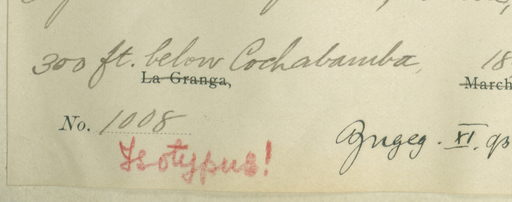 300 ft. below Cochabamba, 18
La Granga, March
No. 1008
Isotypus!
XI.